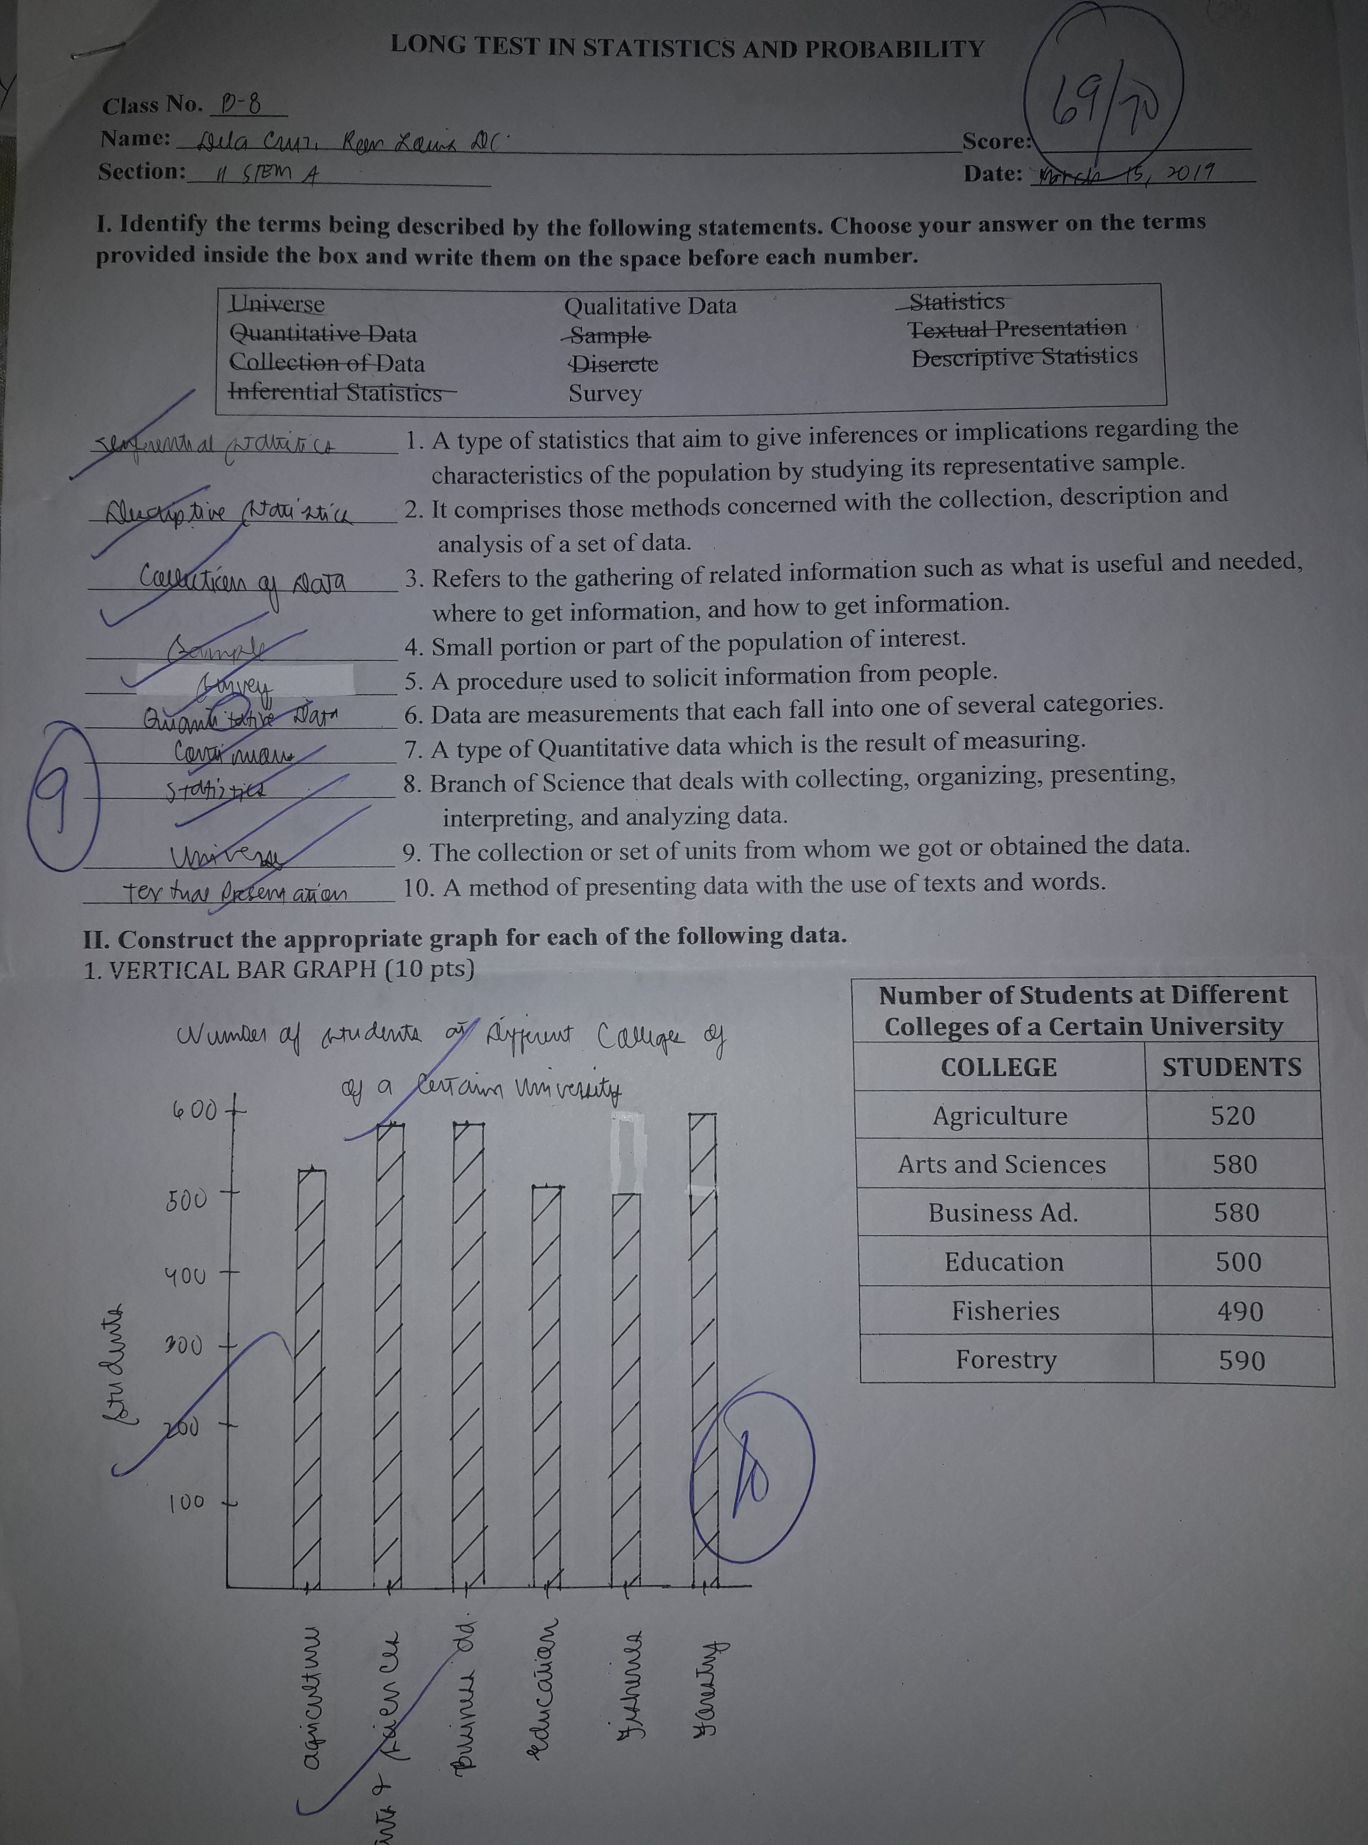 LONG TEST IN STATISTICS AND PROBABILITY
69/70
Class No. B-8
Name: Dela Cruz, Reen Louis DC.
Score:
Section: 11 STEM A
Date: March 15, 2019
I. Identify the terms being described by the following statements. Choose your answer on the terms
provided inside the box and write them on the space before each number.
Universe Qualitative Data Statistics
Quantitative Data Sample Textual Presentation
Collection of Data Discrete Descriptive Statistics
Inferential Statistics Survey
Inferential Statistics 1. A type of statistics that aim to give inferences or implications regarding the
characteristics of the population by studying its representative sample.
Descriptive Statistics 2. It comprises those methods concerned with the collection, description and
analysis of a set of data.
Collection of Data 3. Refers to the gathering of related information such as what is useful and needed,
where to get information, and how to get information.
Sample 4. Small portion or part of the population of interest.
Survey 5. A procedure used to solicit information from people.
Quantitative Data 6. Data are measurements that each fall into one of several categories.
Continuous 7. A type of Quantitative data which is the result of measuring.
Statistics 8. Branch of Science that deals with collecting, organizing, presenting,
interpreting, and analyzing data.
9
Universe 9. The collection or set of units from whom we got or obtained the data.
Textual Presentation 10. A method of presenting data with the use of texts and words.
II. Construct the appropriate graph for each of the following data.
1. VERTICAL BAR GRAPH (10 pts)
Number of Students at Different Colleges of
of a Certain University
600
500
400
300
200
100
Students
10
Agriculture
Arts & Sciences
Business Ad.
Education
Fisheries
Forestry
Number of Students at Different
Colleges of a Certain University
COLLEGE STUDENTS
Agriculture 520
Arts and Sciences 580
Business Ad. 580
Education 500
Fisheries 490
Forestry 590